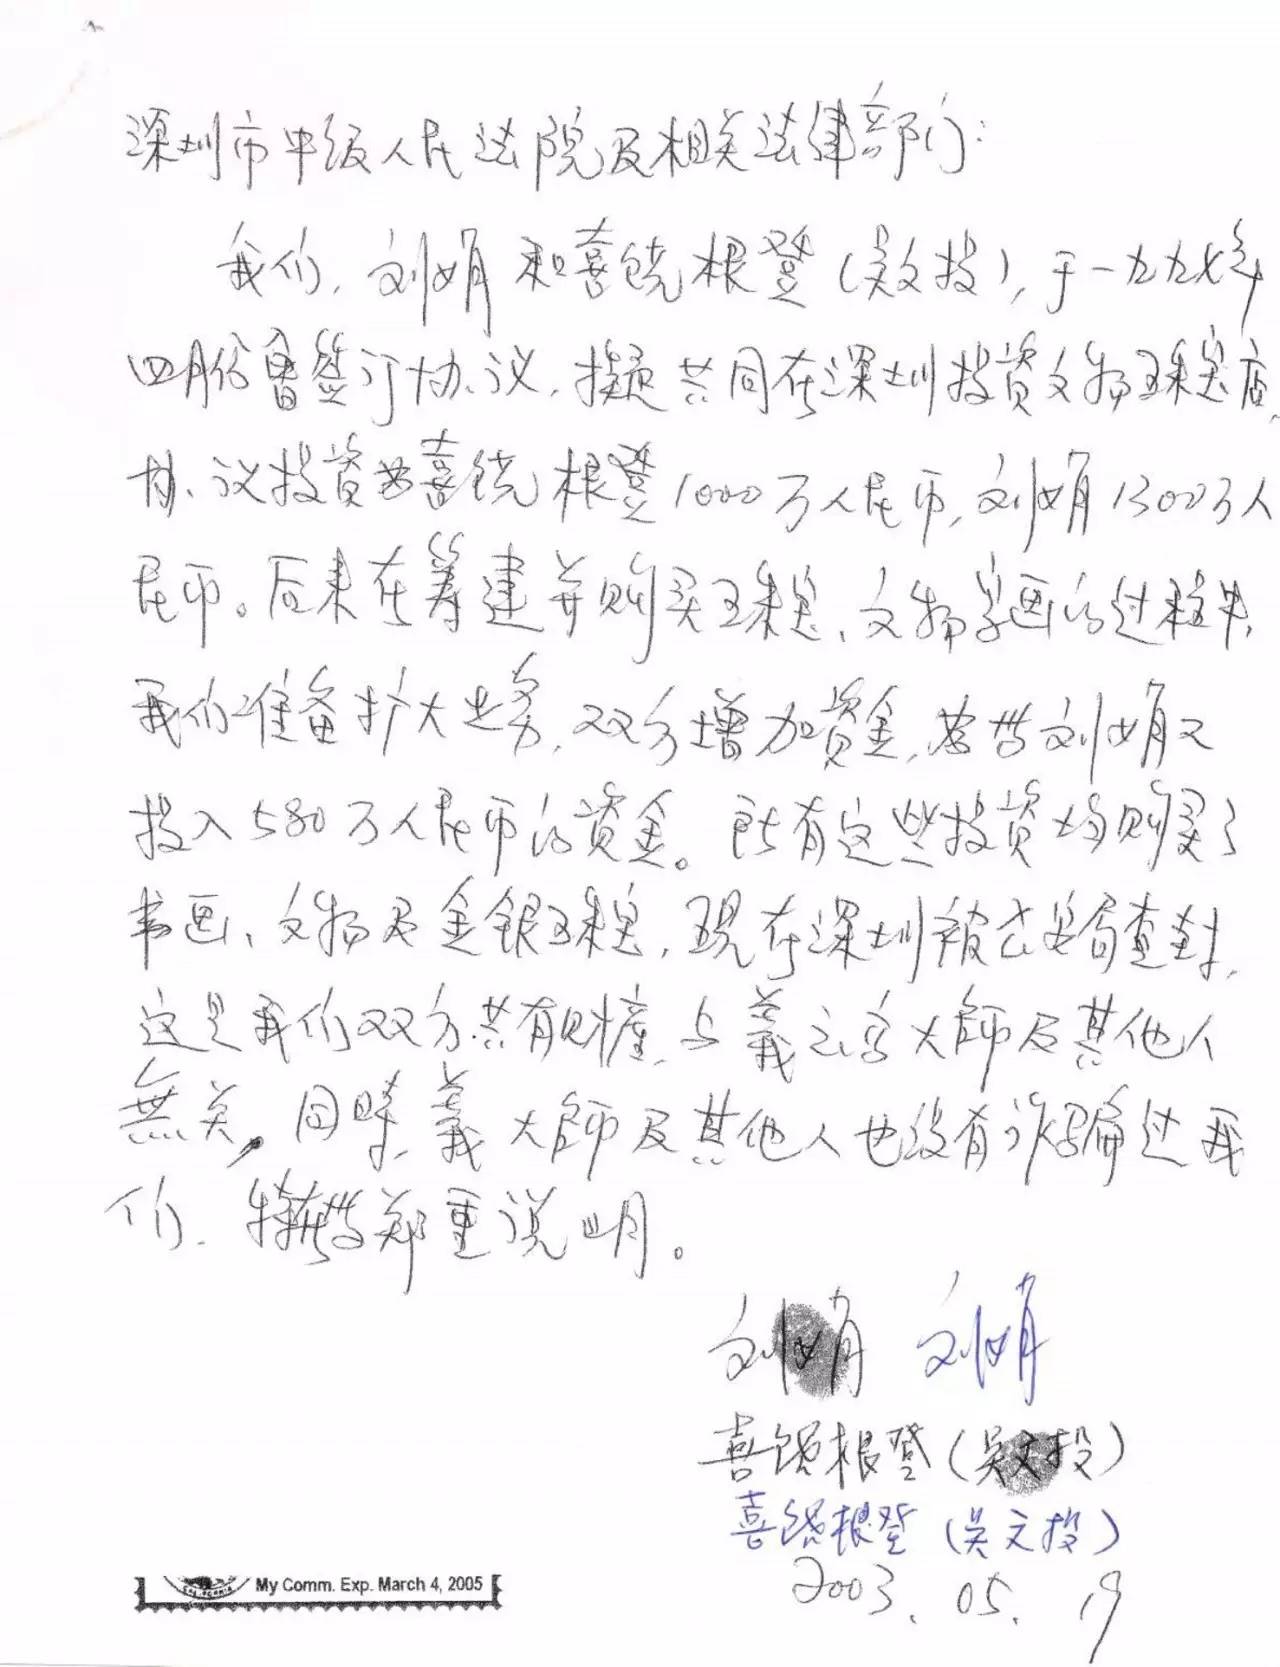 深圳市中级人民法院及相关法律部门:
我们,刘娟和喜饶根登(吴文投),于一九九七年
四月份曾签订协议,拟共同在深圳投资文物珠宝店,
协议投资为喜饶根登1000万人民币,刘娟1300万人
民币。后来在筹建并购买珠宝、文物字画的过程中,
我们准备扩大业务,双方增加资金,刘娟又
投入580万人民币的资金。所有这些投资均购买了
书画、文物及金银珠宝,现在深圳被公安局查封,
这是我们双方共有财产,与義云高大師及其他人
無关,同時,義大師及其他人也没有诈骗过我
们,特此郑重说明。
刘娟 刘娟
喜饶根登(吴文投)
喜饶根登(吴文投)
2003.05.19
CALIFORNIA
My Comm. Exp. March 4, 2005